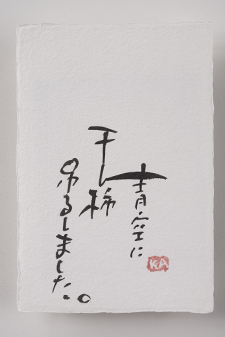 青空に
干し柿
吊るしました。
KA